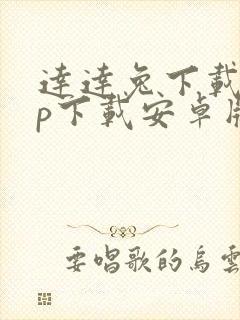 達達兔下載
p下載安卓版
要唱歌的烏雲